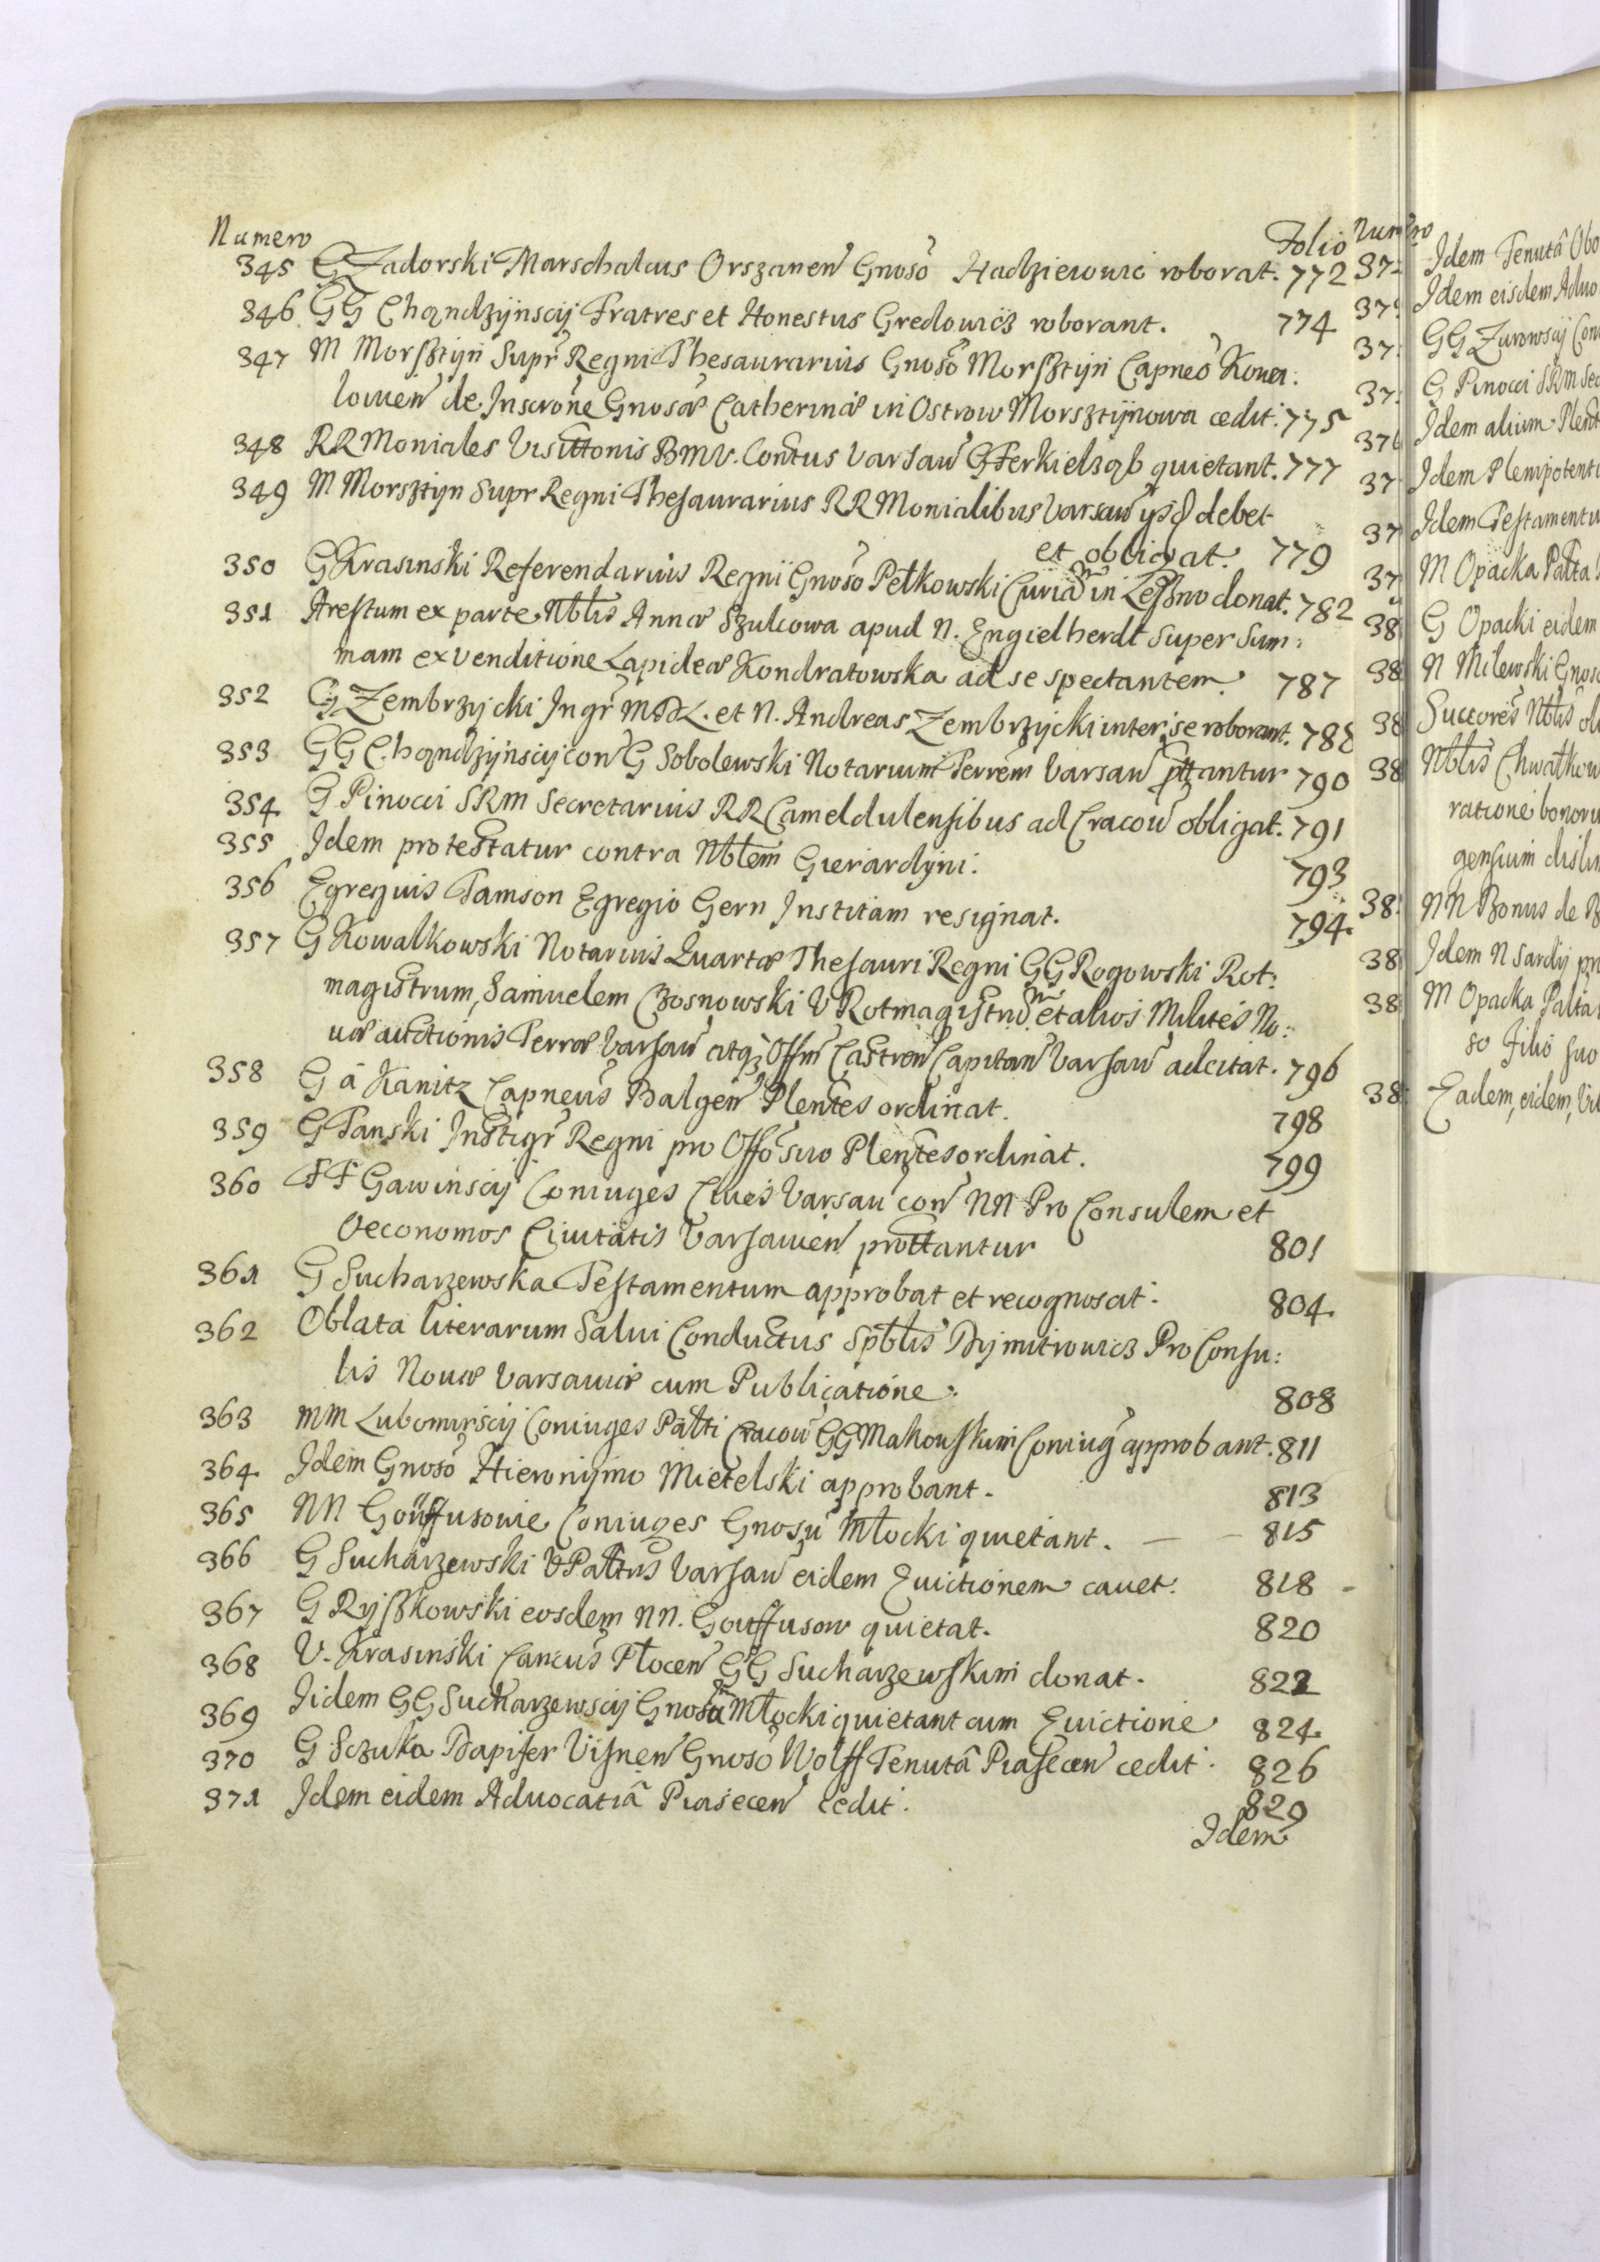 Numero Folio
345 G Zadorski Marschalcus Orszanen Gnoso Hadziewicz roborat. 772
346 GG Chądzijnscij Fratres et Honestus Gredowicz roborant. 774
347 M Morsztijn Supr Regni Thesaurarius Gnoso Morsztijn Capneo Kowa:
lowien de Inscrone Gnosæ Catherinæ in Ostrow Morsztijnowa cedit. 775
348 RR Moniales Visittonis BMV. Contus Varsaw G Ferkielząb quietant. 777
349 M Morsztijn Supr Regni Thesaurarius RR Monialibus Varsaw debet
et obligat. 779
350 G Krasinski Referendarius Regni Gnoso Petkowski Curiam in Leszno donat. 782
351 Arestum ex parte Nblis Annæ Szulcowa apud N. Engielherdt super Sum:
mam ex venditione Lapideæ Kondratowska ad se spectantem. 787
352 G Zembrzycki Ingr MDL. et N. Andreas Zembrzycki inter se roborant. 788
353 GG Chądzijnscij con G Sobolewski Notarium Terrem Varsaw prttantur 790
354 G Pinocci SRM Secretarius RR Cameldulensibus ad Cracow obligat. 791
355 Idem protestatur contra Nblem Gierardijni. 793
356 Egregius Tamson Egregio Gern Institam resignat. 794.
357 G Kowalkowski Notarius Quartæ Thesauri Regni GG Rogowski Rot:
magistrum, Samuelem Czosnowski V Rotmagistrum et alios Milites No:
uæ auctionis Terræ Varsaw atq Offm Castren Capitan Varsaw adcitat. 796
358 G a Kanitz Capneus Balgen Plentes ordinat. 798
359 G Tanski Instigr Regni pro Offo suo Plentes ordinat. 799
360 FF Gawinscij Coniuges Ciues Varsau con NN Pro Consulem et
Oeconomos Ciuitatis Varsauien prottantur 801
361 G Sucharzewska Testamentum approbat et recognoscit. 804.
362 Oblata literarum Salui Conductus Spblis Dijmitrowicz Pro Consu:
lis Nouæ Varsauiæ cum Publicatione. 808
363 MM Lubomirscij Coniuges Palti Cracou GG Makowskim Coniug approbant. 811
364. Idem Gnoso Hieronijmo Mietelski approbant. 813
365 NN Gouffusowie Coniuges Gnosu Młocki quietant. 815
366 G Sucharzewski VPaltus Varsaw eidem Euictionem cauet. 818
367 G Rijszkowski eosdem NN. Gouffusow quietat. 820
368 V. Krasinski Cancus Płocen GG Sucharzewskim donat. 822
369 Iidem GG Sucharzewscij Gnosum Młocki quietant cum Euictione 824.
370 G Sczuka Dapifer Visnen Gnoso Wolff Tenutâ Piasecen cedit. 826
371 Idem eidem Aduocatiâ Piasecen cedit. 829
Idem
Numero
Idem Tenutâ Obo
Idem eisdem Aduo
GG Zurowscij Con
G Pinocci SRM Sec
376 Idem alium Plent
Idem Plenipotenti
Idem Testamentu
M Opacka Palta
G Opacki eidem
N Milewski Gnoso
Succores Nblis
Nblis Chwałkow
ratione bonoru
gensium
NN Bonus de
Idem N Sardij
M Opacka Palta
so Filio suo
Eadem, eidem,